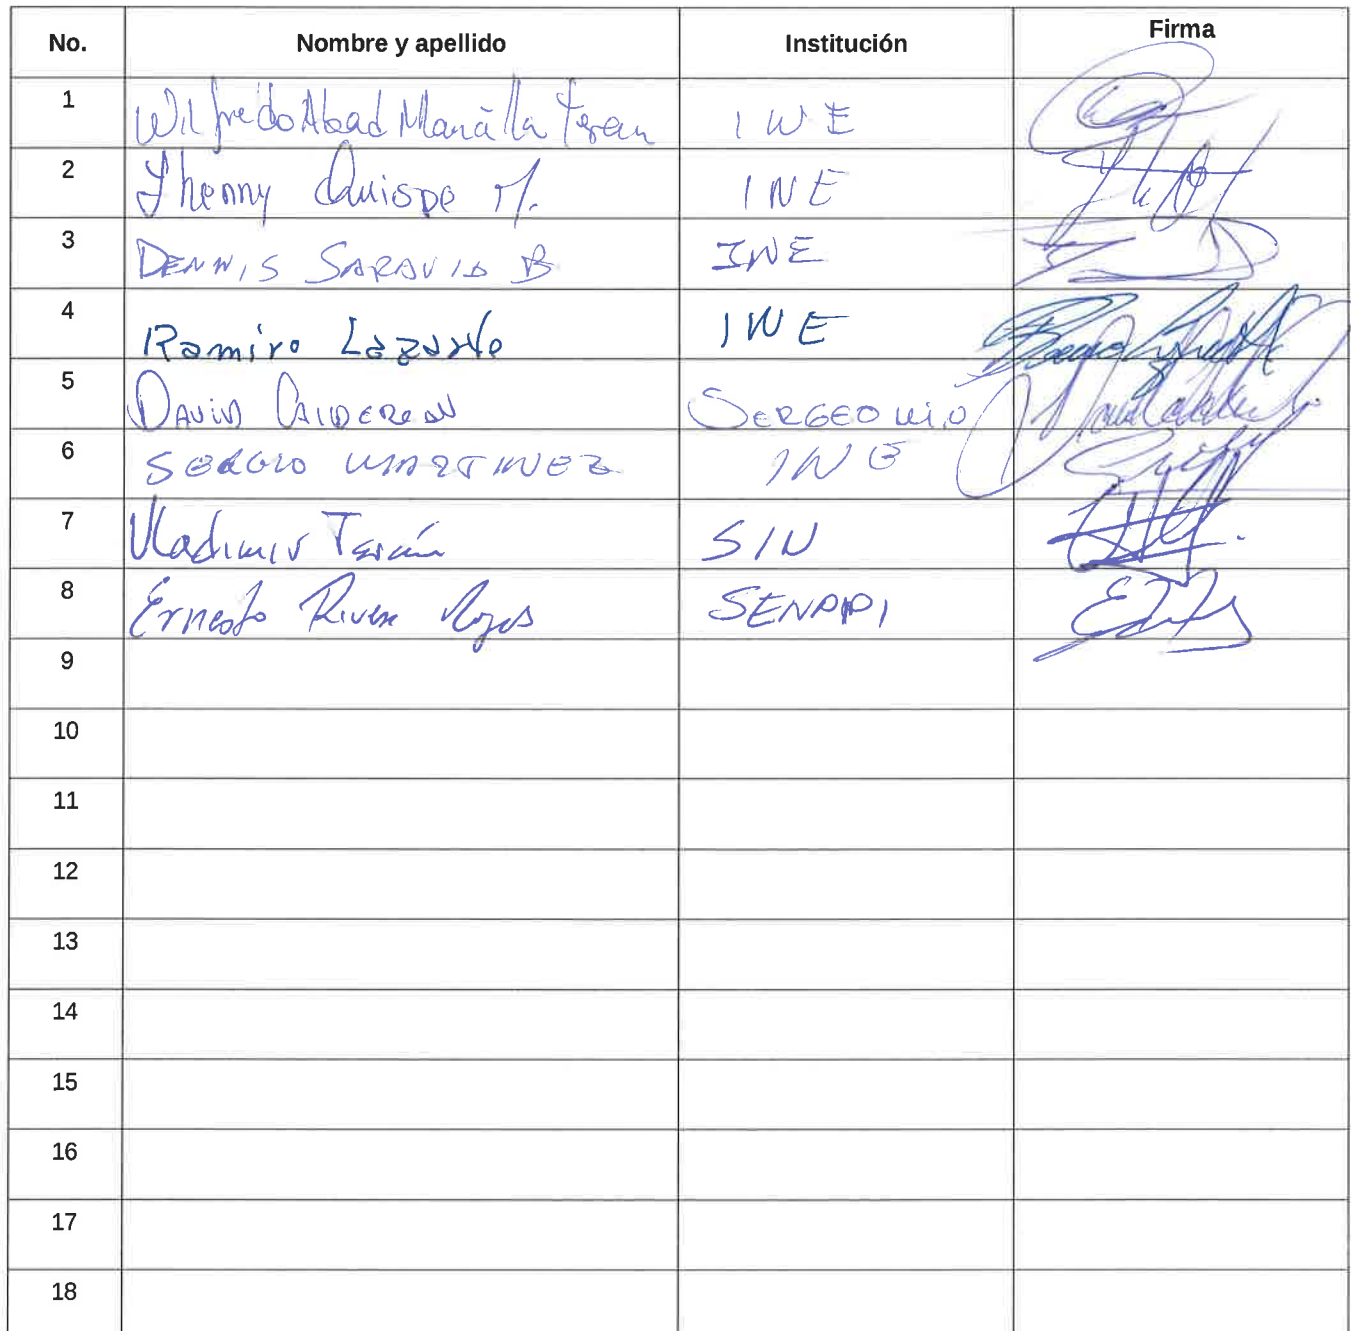 No. Nombre y apellido Institución Firma
1 Wilfredo Abad Mancilla Teran INE
2 Jhenny Quispe M. INE
3 DENNIS SARAVIA B INE
4 Ramiro Lazarte INE
5 DAVID CALDERON SERGEOMIN
6 SERGIO MARTINEZ INE
7 Vladimir Terán SIN
8 Ernesto Rivera Rojas SENAPI
9
10
11
12
13
14
15
16
17
18